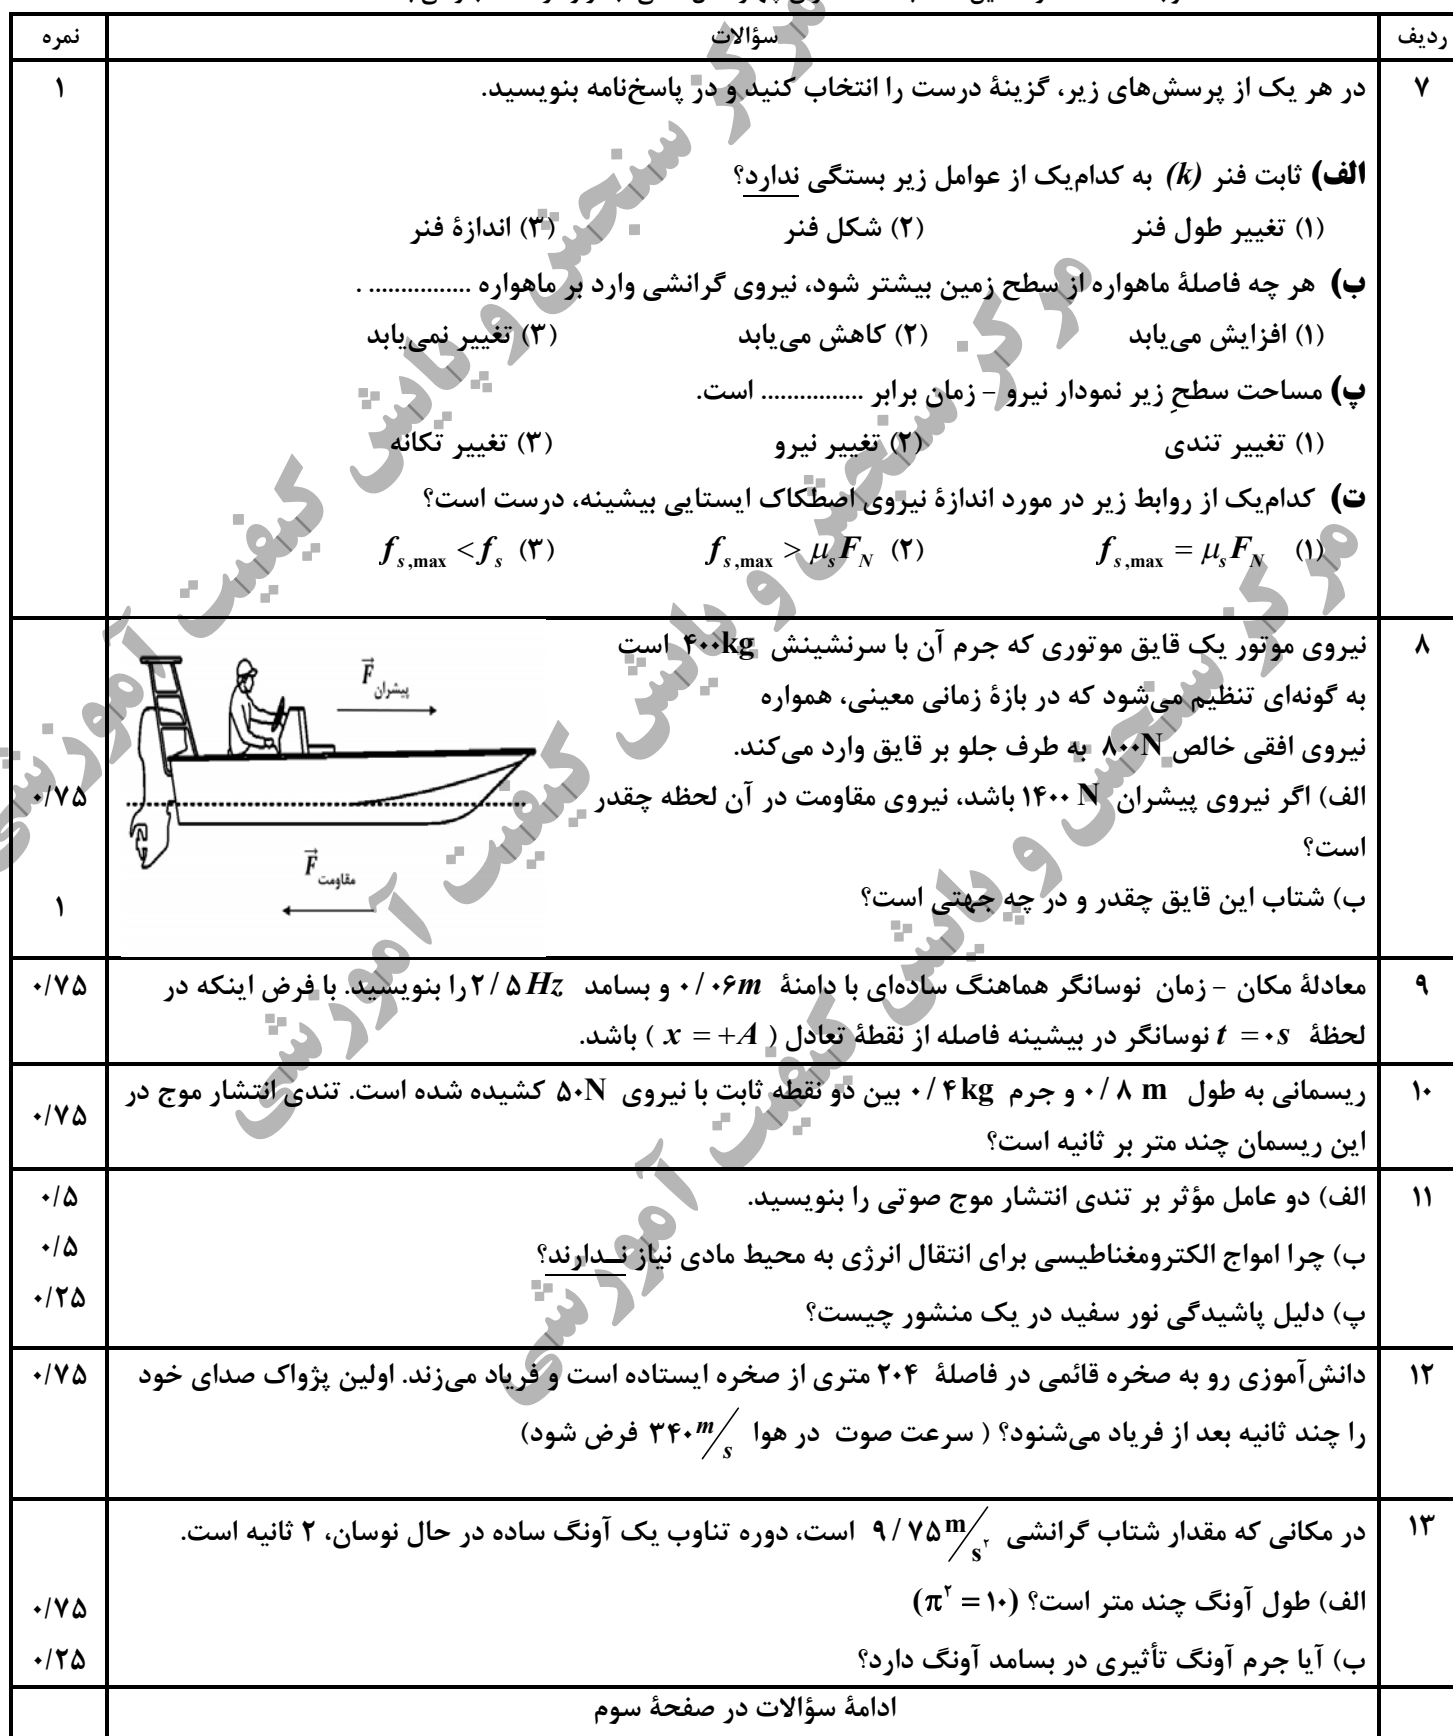 ردیف سؤالات نمره
۷ در هر یک از پرسش‌های زیر، گزینهٔ درست را انتخاب کنید و در پاسخ‌نامه بنویسید. ۱
الف) ثابت فنر (k) به کدام‌یک از عوامل زیر بستگی ندارد؟
(۱) تغییر طول فنر (۲) شکل فنر (۳) اندازهٔ فنر
ب) هر چه فاصلهٔ ماهواره از سطح زمین بیشتر شود، نیروی گرانشی وارد بر ماهواره ................ .
(۱) افزایش می‌یابد (۲) کاهش می‌یابد (۳) تغییر نمی‌یابد
پ) مساحت سطحِ زیر نمودار نیرو - زمان برابر ................ است.
(۱) تغییر تندی (۲) تغییر نیرو (۳) تغییر تکانه
ت) کدام‌یک از روابط زیر در مورد اندازهٔ نیروی اصطکاک ایستایی بیشینه، درست است؟
(۱) f_{s,max} = μ_s F_N (۲) f_{s,max} > μ_s F_N (۳) f_{s,max} < f_s
۸ نیروی موتور یک قایق موتوری که جرم آن با سرنشینش ۴۰۰kg است
به گونه‌ای تنظیم می‌شود که در بازهٔ زمانی معینی، همواره
نیروی افقی خالص ۸۰۰N به طرف جلو بر قایق وارد می‌کند.
الف) اگر نیروی پیشران ۱۴۰۰ N باشد، نیروی مقاومت در آن لحظه چقدر ۰/۷۵
است؟
ب) شتاب این قایق چقدر و در چه جهتی است؟ ۱
F⃗ پیشران
F⃗ مقاومت
۹ معادلهٔ مکان - زمان نوسانگر هماهنگ ساده‌ای با دامنهٔ ۰/۰۶m و بسامد ۲/۵Hz را بنویسید. با فرض اینکه در ۰/۷۵
لحظهٔ t = ۰s نوسانگر در بیشینه فاصله از نقطهٔ تعادل ( x = +A ) باشد.
۱۰ ریسمانی به طول ۰/۸ m و جرم ۰/۴kg بین دو نقطه ثابت با نیروی ۵۰N کشیده شده است. تندی انتشار موج در ۰/۷۵
این ریسمان چند متر بر ثانیه است؟
۱۱ الف) دو عامل مؤثر بر تندی انتشار موج صوتی را بنویسید. ۰/۵
ب) چرا امواج الکترومغناطیسی برای انتقال انرژی به محیط مادی نیاز نــدارند؟ ۰/۵
پ) دلیل پاشیدگی نور سفید در یک منشور چیست؟ ۰/۲۵
۱۲ دانش‌آموزی رو به صخره قائمی در فاصلهٔ ۲۰۴ متری از صخره ایستاده است و فریاد می‌زند. اولین پژواک صدای خود ۰/۷۵
را چند ثانیه بعد از فریاد می‌شنود؟ ( سرعت صوت در هوا ۳۴۰ m/s فرض شود)
۱۳ در مکانی که مقدار شتاب گرانشی ۹/۷۵ m/s² است، دوره تناوب یک آونگ ساده در حال نوسان، ۲ ثانیه است.
الف) طول آونگ چند متر است؟ (π² = ۱۰) ۰/۷۵
ب) آیا جرم آونگ تأثیری در بسامد آونگ دارد؟ ۰/۲۵
ادامهٔ سؤالات در صفحهٔ سوم
مرکز سنجش و پایش کیفیت آموزشی
مرکز سنجش و پایش کیفیت آموزشی
مرکز سنجش و پایش کیفیت آموزشی